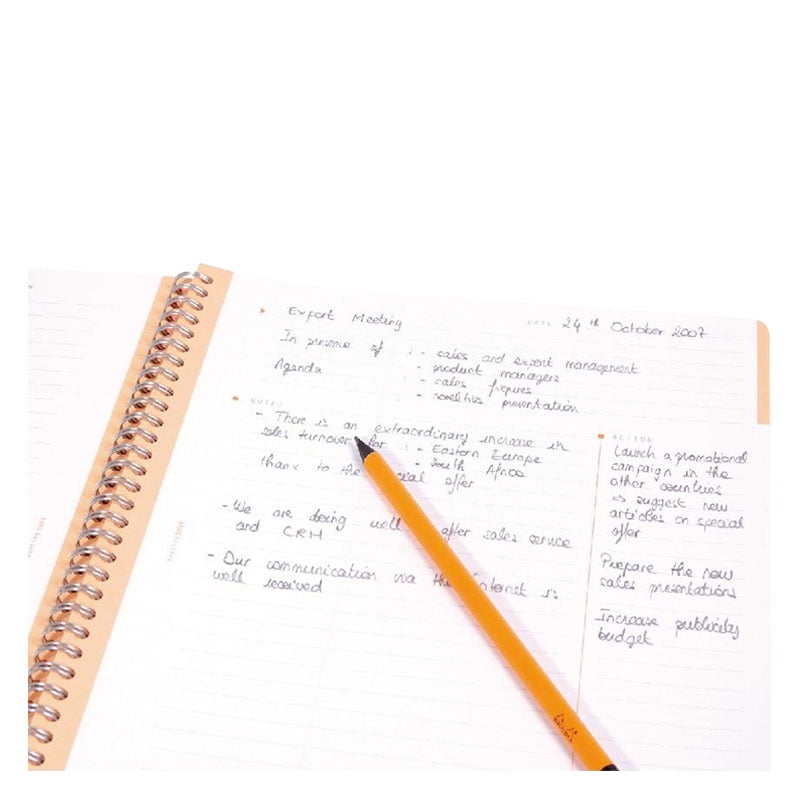 Export Meeting
DATE 24th October 2007
In presence of : - sales and export management
- product managers
Agenda : - sales figures
: - novelties presentation
NOTES
- There is an extraordinary increase in
sales turnover for : - Eastern Europe
- South Africa
thanx to the offer
- We are doing well after sales service
and CRM
- Our communication via the Internet is
well received
ACTION
Launch a promotional
campaign in the
other countries
⇒ suggest new
articles on special
offer
Prepare the new
sales presentations
Increase publicity
budget